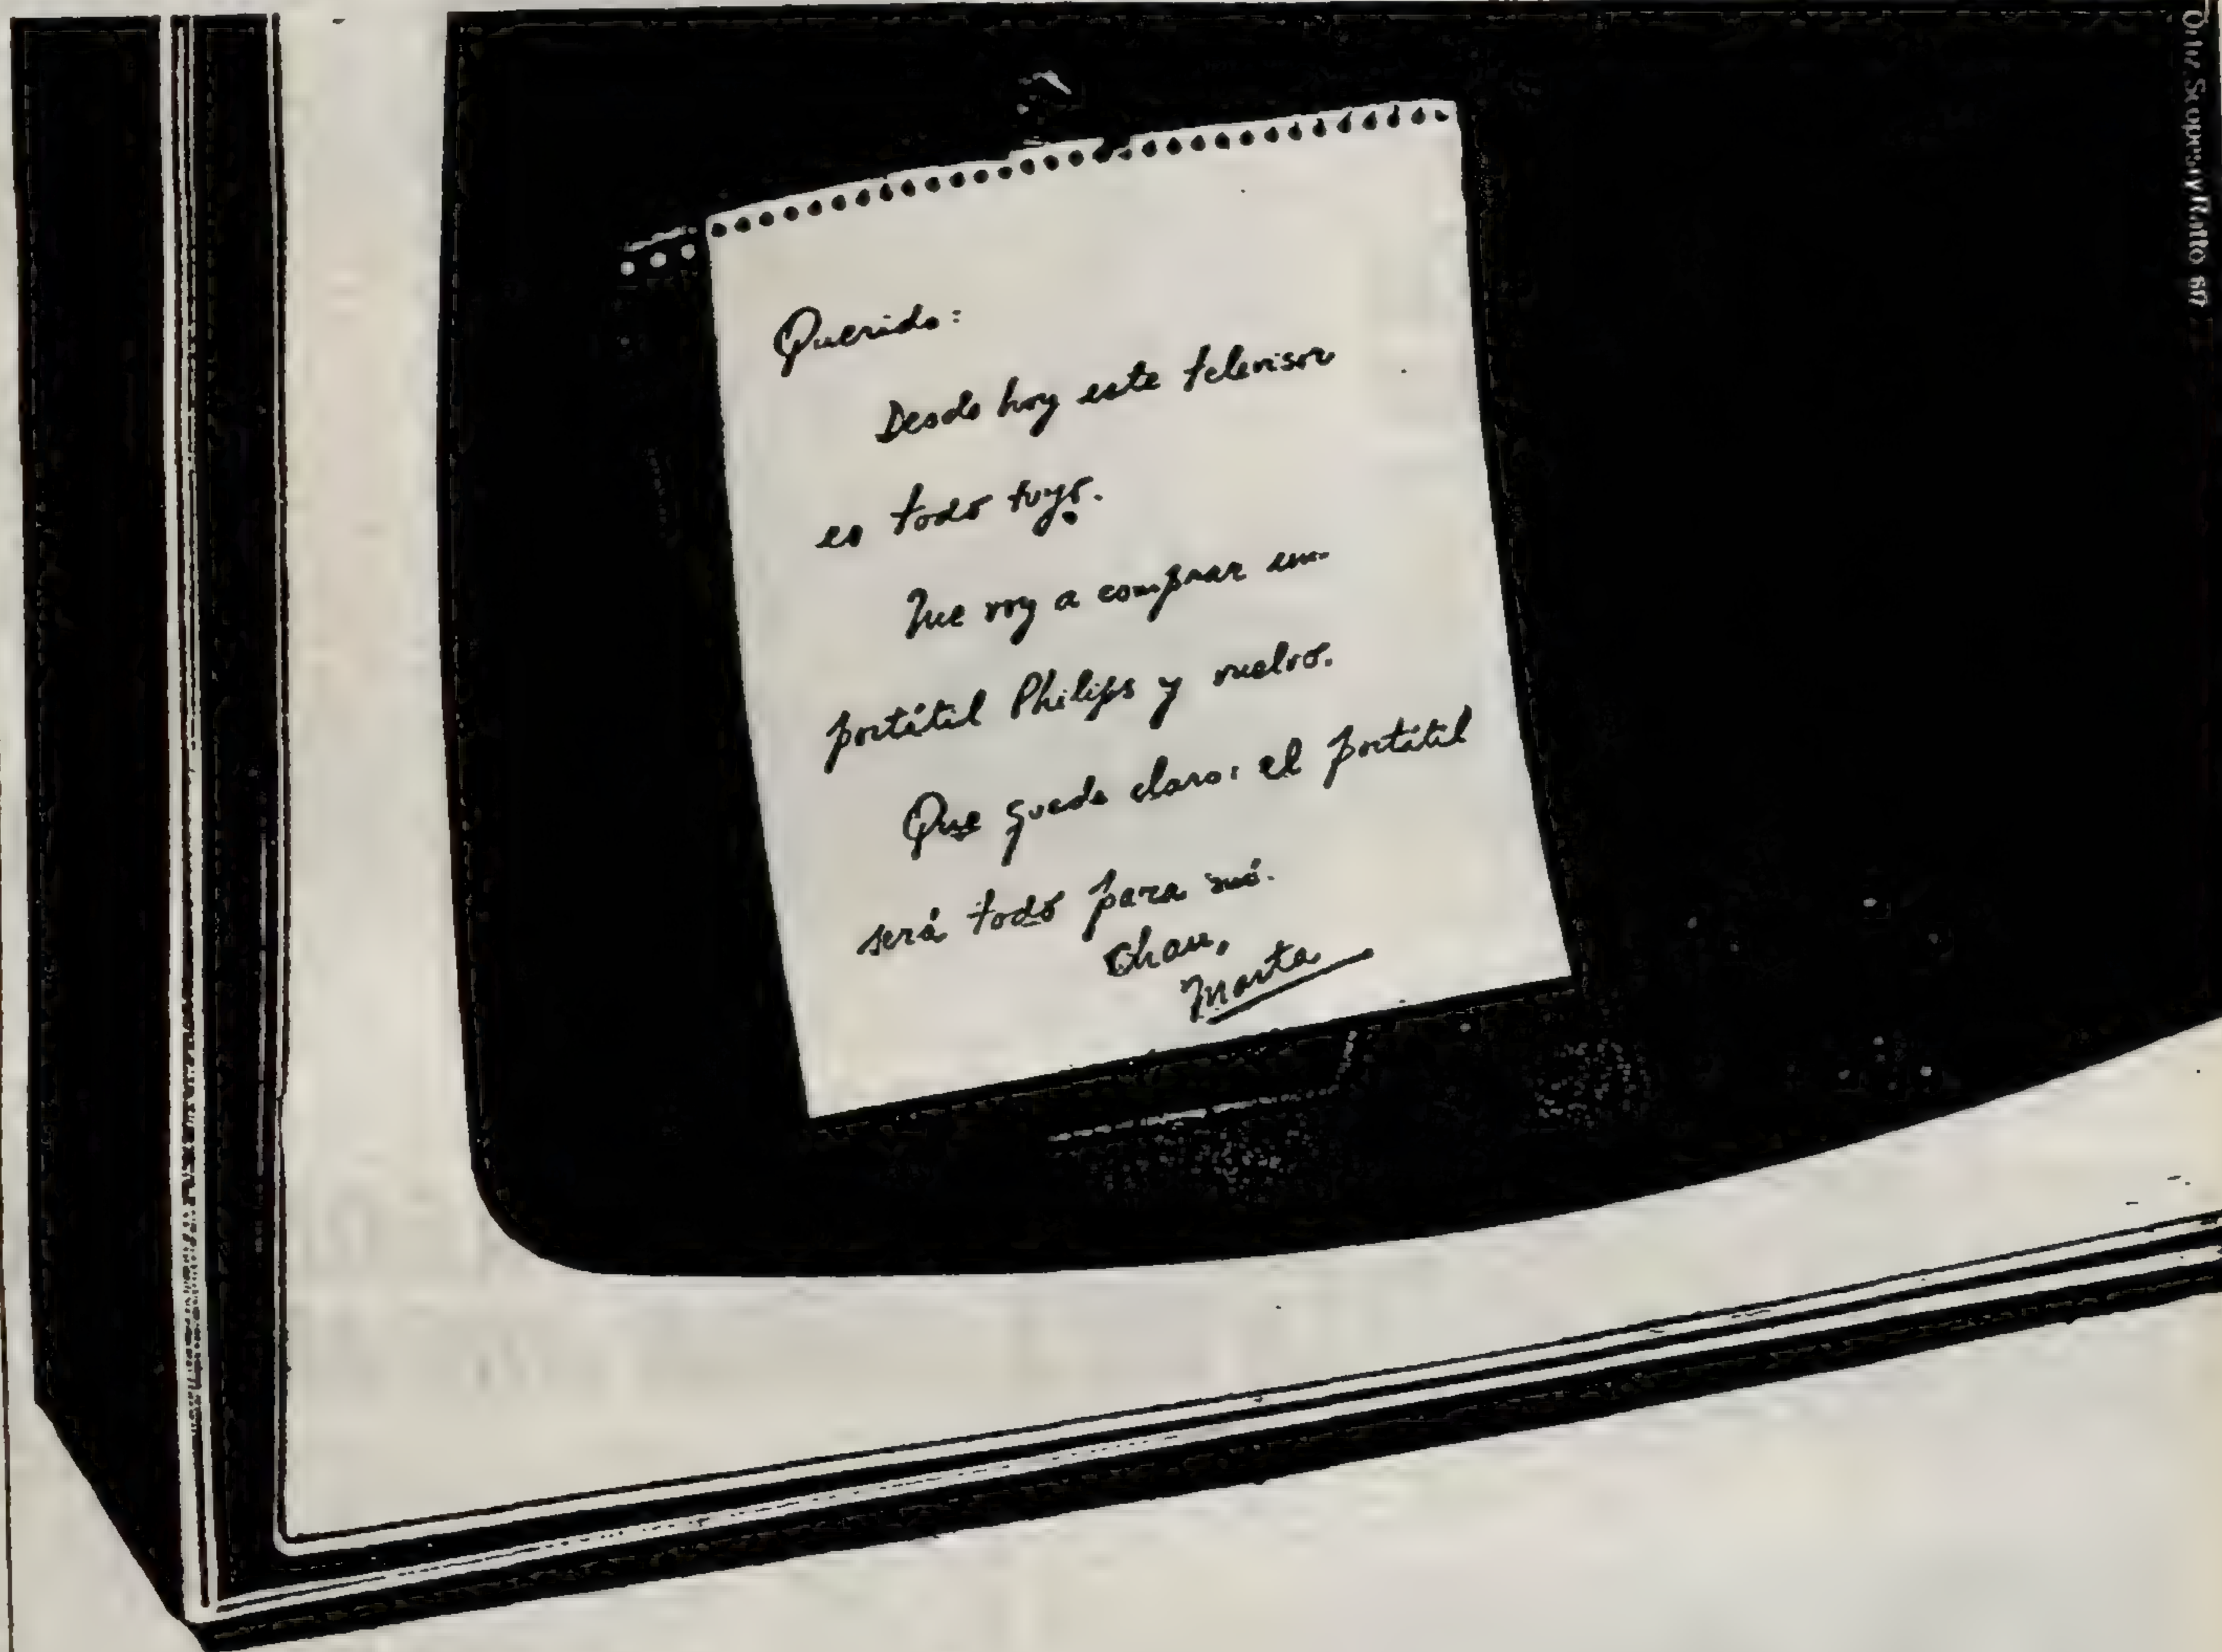 Querido:
Desde hoy este televisor
es todo tuyo.
Me voy a comprar un
portátil Philips y vuelvo.
Que quede claro: el portátil
será todo para mí.
Chau,
Marta
Ortiz, Scopesi y Ratto